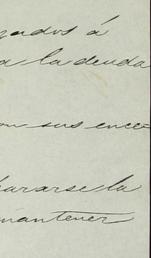 gados á
a la deuda
on sus ence=
pararse la
mantener